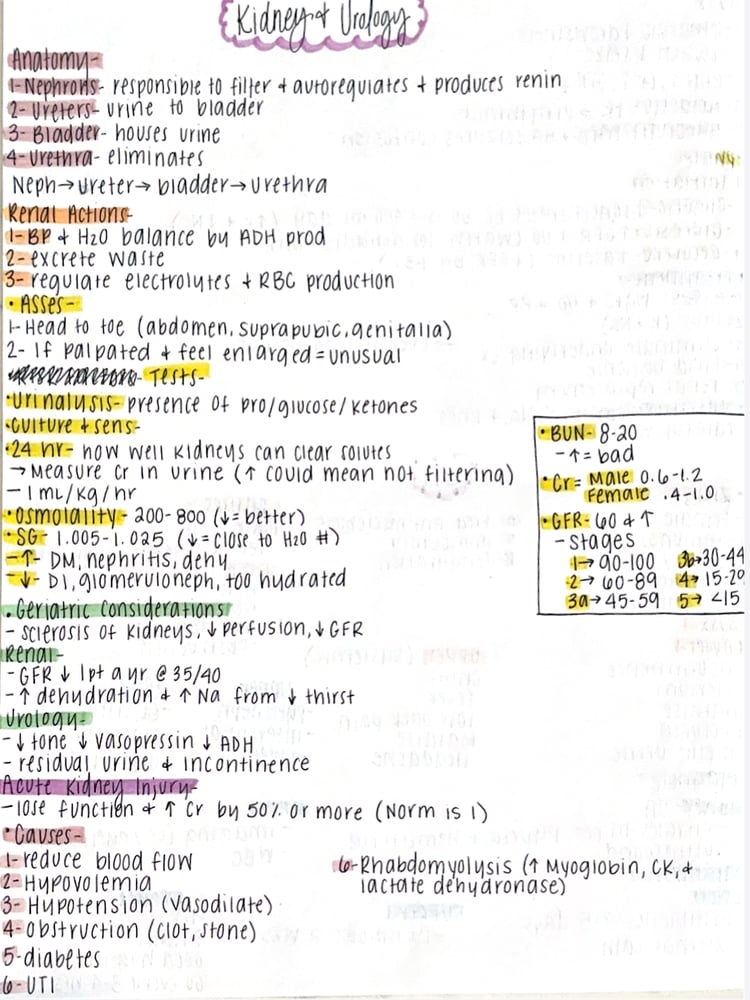 Kidney & Urology
Anatomy-
1-Nephrons- responsible to filter & autoregulates & produces renin
2- Ureters- urine to bladder
3- Bladder- houses urine
4-Urethra- eliminates
Neph→Ureter→bladder→Urethra
Renal Actions-
1-BP & H2O balance by ADH prod
2-excrete waste
3- regulate electrolytes & RBC production
• Asses-
1- Head to toe (abdomen, suprapubic, genitalia)
2- If palpated & feel enlarged = unusual
- Tests-
•Urinalysis- presence of pro/glucose/ketones
•Culture & sens-
•24 hr- how well kidneys can clear solutes
→ Measure Cr in urine (↑ could mean not filtering)
- 1 mL/kg/hr
•Osmolality- 200-800 (↓= better)
•SG- 1.005-1.025 (↓= close to H2O #)
-↑- DM, nephritis, dehy
-↓- DI, glomeruloneph, too hydrated
•BUN- 8-20
-↑= bad
•Cr= Male 0.6-1.2
Female .4-1.0
•GFR- 60 & ↑
- stages
1→ 90-100 3b→30-44
2→ 60-89 4→ 15-29
3a→45-59 5→ <15
• Geriatric Considerations
- sclerosis of kidneys, ↓ perfusion, ↓ GFR
Renal-
-GFR ↓ 1pt a yr @ 35/40
-↑ dehydration & ↑ Na from ↓ thirst
Urology-
-↓ tone ↓ vasopressin ↓ ADH
- residual urine & incontinence
Acute Kidney Injury-
-lose function & ↑ Cr by 50% or more (Norm is 1)
•Causes-
1-reduce blood flow
2-Hypovolemia
3-Hypotension (Vasodilate)
4-obstruction (Clot, stone)
5-diabetes
6-UTI
6-Rhabdomyolysis (↑ Myoglobin, CK, &
lactate dehydronase)